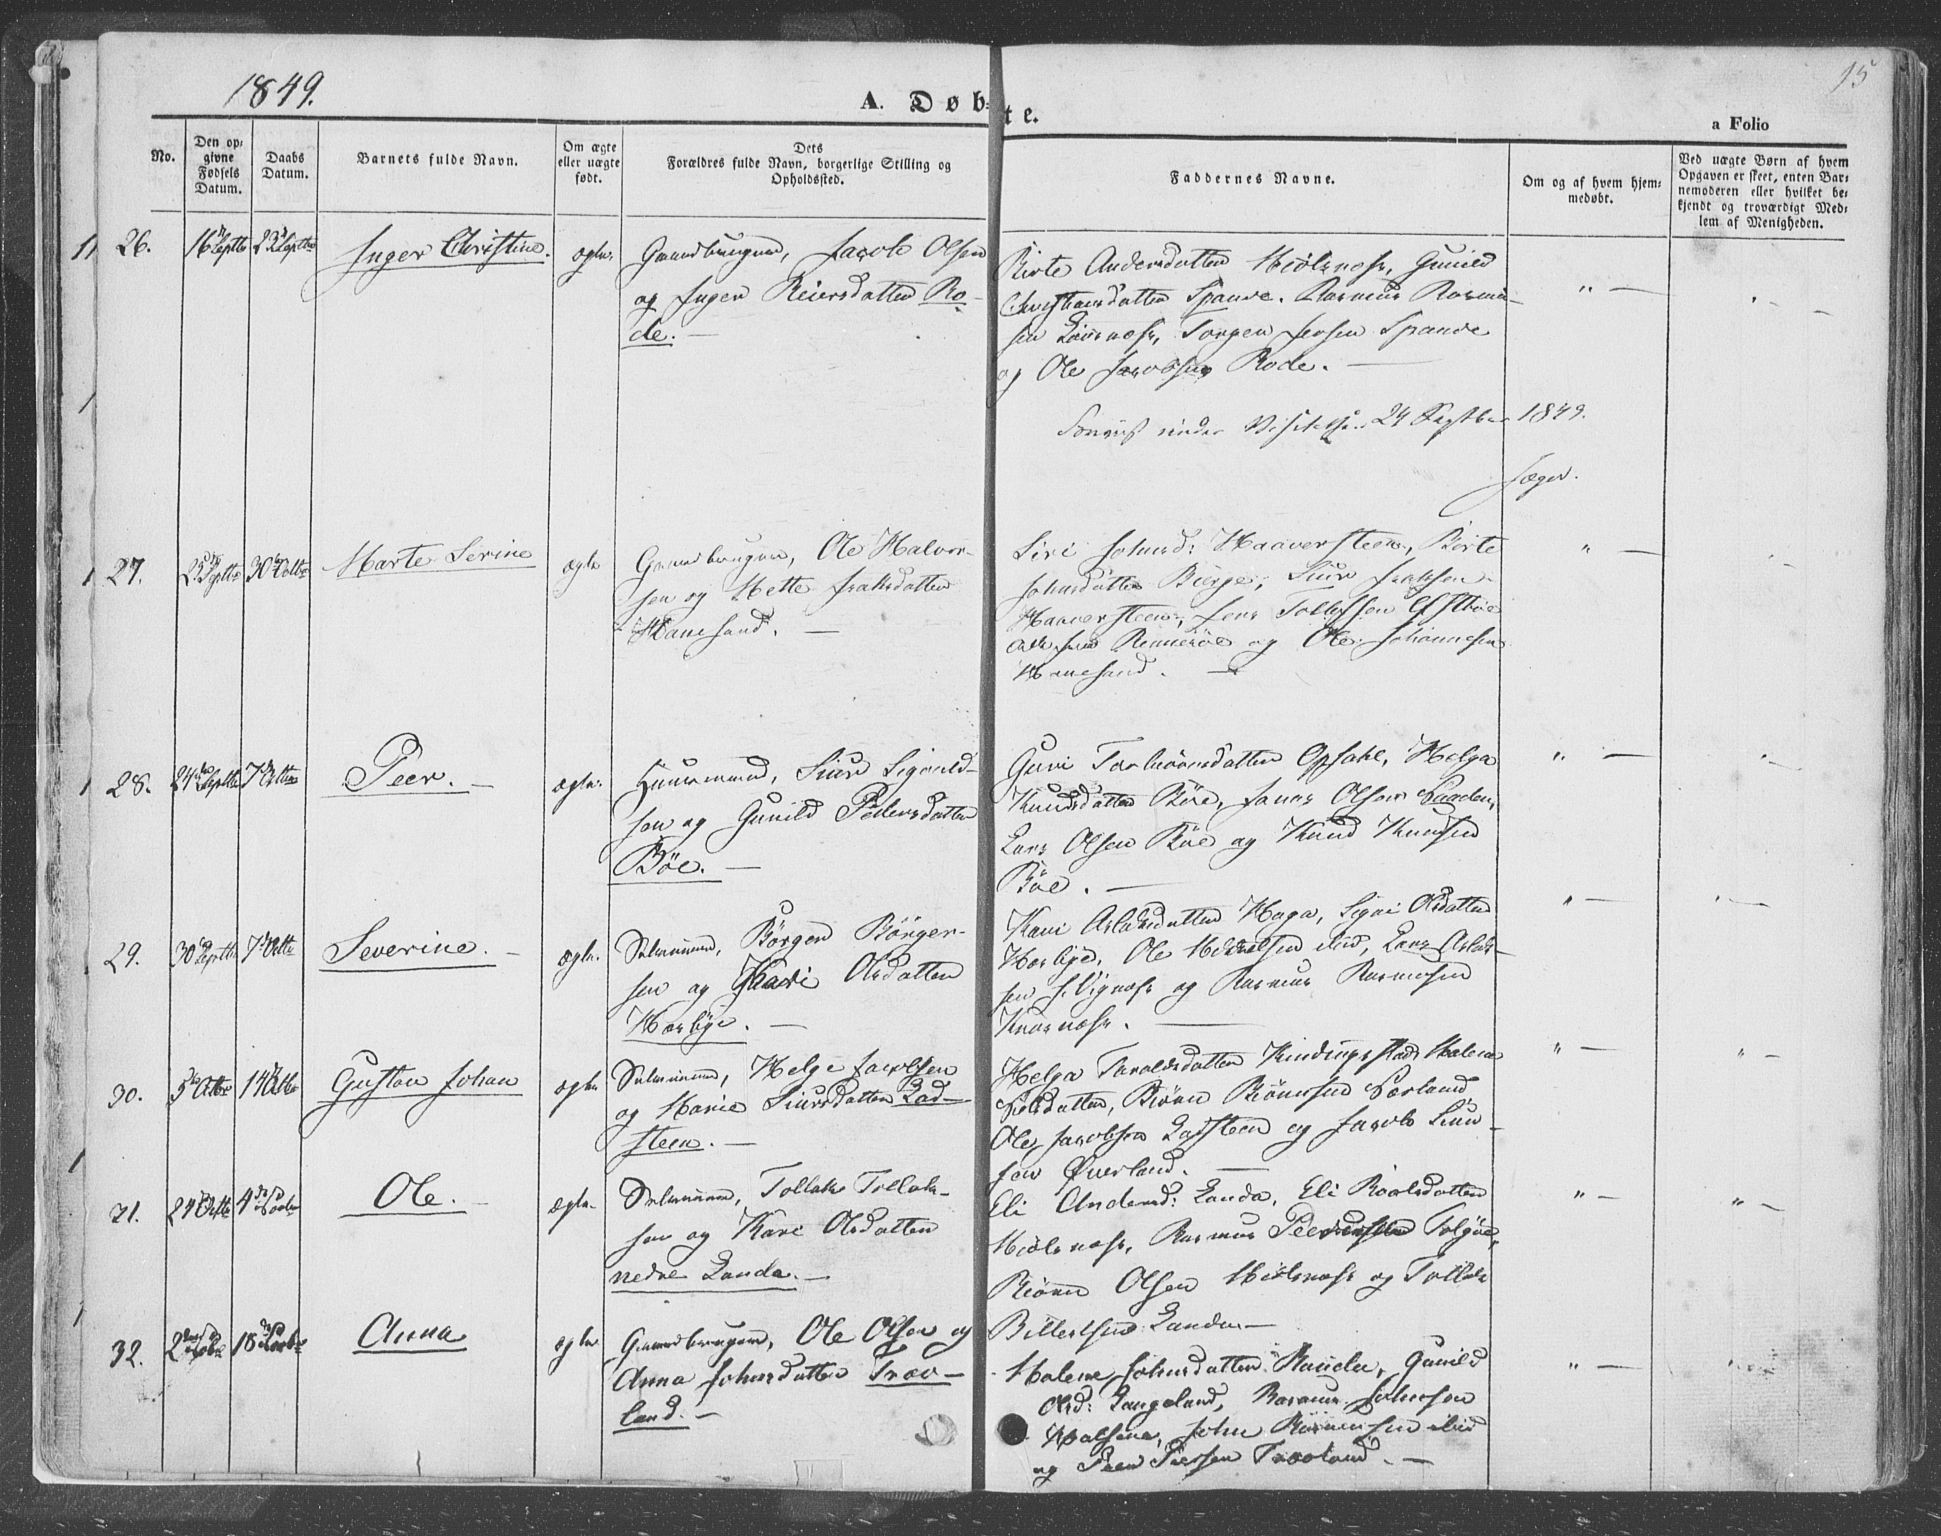 1849.
15
A. Døbte.
a Folio
No.
Den opgivne Fødsels Datum.
Daabs Datum.
Barnets fulde Navn.
Om ægte eller uægte født.
Dets
Forældres fulde Navn, borgerlige Stilling og
Opholdssted.
Faddernes Navne.
Om og af hvem hjem-
medøbt.
Ved uægte Børn af hvem
Opgaven er skeet, enten Bar-
nemoderen eller hvilket be-
kjendt og troværdigt Med-
lem af Menigheden.
26. 16 Septbr 23 Septbr Inger Christine. ægte. Gaardbruger, Jacob Olsen
og Inger Reiersdatter Ro-
de. —
Birte Andersdatter Hiölsnæs, Gunild
Christiansdatter Spanne. Rasmus Rasmu-
sen, Torger Jensen Spanne
og Ole Jacobsen Rode. —
under Visitatsen 24 Septber 1849.
27. 23 Septbr 30 Septbr Marte Serine ægte Gaardbruger, Ole Halvor-
sen og Mette Isaksdatter
Hanesand. —
Siri Johnsd: Haaversteen, Birte
Johnsdatter Berge, Siur Isaksen
Haaversteen, Jens Tollefsen
Rennesöe og Ole Johannesen
Hanesand. —
28. 24de Septbr 7de Octbr Peer. — ægte. Huusmand, Siur Sigvald-
sen og Gunild Pedersdatter
Böe. —
Guri Torbiörnsdatter Opsahl, Helga
Knudsdatter Böe, Jonas Olsen Sanden,
Lars Olsen Böe og Knud Knudsen
Böe. —
29. 30 Septbr 7de Octbr Severine. — ægte. Selveiermand, Börger Börger-
sen og Kari Olsdatter
Hærbye. —
Kari Aslaksdatter Haga, Signi Olsdatter
Hærbye, Ole Mikkelsen ibid, Lars Aslak-
sen Vignæs og Rasmus Rasmusen
Knarnæs. —
30. 5te Octbr 14 Octbr Gustav Johan ægte Selveiermand, Helge Jacobsen
og Marie Siursdatter Lad-
steen. —
Helga Taraldsdatter Kindingstad, Malene
Nielsdatter, Biörn Biörnsen Sörland,
Ole Jacobsen Ladsteen og Jacob Siur-
sen Øverland. —
31. 24 Octbr 4de Novbr Ole. — ægte. Selveiermand, Tollak Tollak-
sen og Kari Olsdatter
nedre Landa. —
Eli Andersd: Landa, Eli Roalsdatter
Hiölsnæs, Rasmus Peersen Talgöe,
Biörn Olsen Hiölsnæs og Tollak
Villertsen Landa —
32. 2den Novbr 18de Novbr Anna ægte Gaardbruger, Ole Olsen og
Anna Johnsdatter Træe-
land. —
Malene Johnsdatter Hauske, Gunild
Olsd: Langeland, Rasmus Johnsen
Halsene, John Rasmussen ibid
og Peer Persen Træeland. —